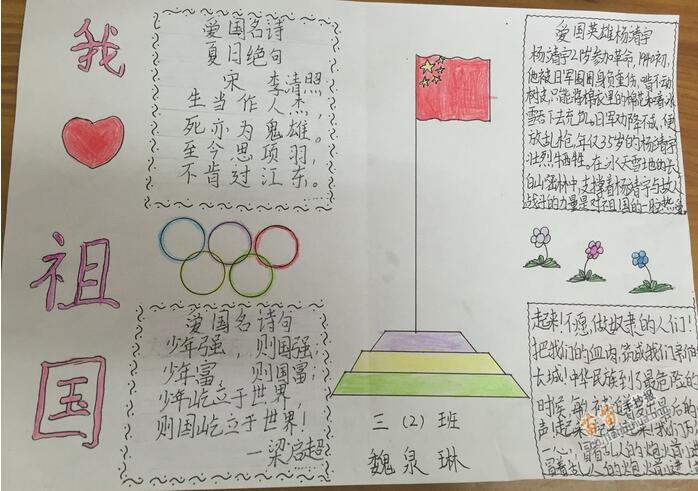 我
祖
国
爱国名诗
夏日绝句
宋 李清照
生当作人杰,
死亦为鬼雄。
至今思项羽,
不肯过江东。
爱国名诗句
少年强,则国强;
少年富,则国富;
少年屹立于世界,
则国屹立于世界!
—梁启超
三(2)班
魏泉琳
爱国英雄杨靖宇
杨靖宇21岁参加革命,1940初,
他被日军围困身负重伤,啃不动
树皮,只能将棉衣里的棉花和着冰
雪吞下去充饥,日军劝降不成,便
放乱枪,年仅35岁的杨靖宇
壮烈牺牲。在冰天雪地的长
白山密林中,支撑着杨靖宇与敌人
战斗的力量是对祖国的一腔热
起来!不愿做奴隶的人们!
把我们的血肉,筑成我们新的
长城!中华民族到了最危险的
时候,每
声!起来
一心,冒着敌人的炮火前进
冒着敌人的炮火前进